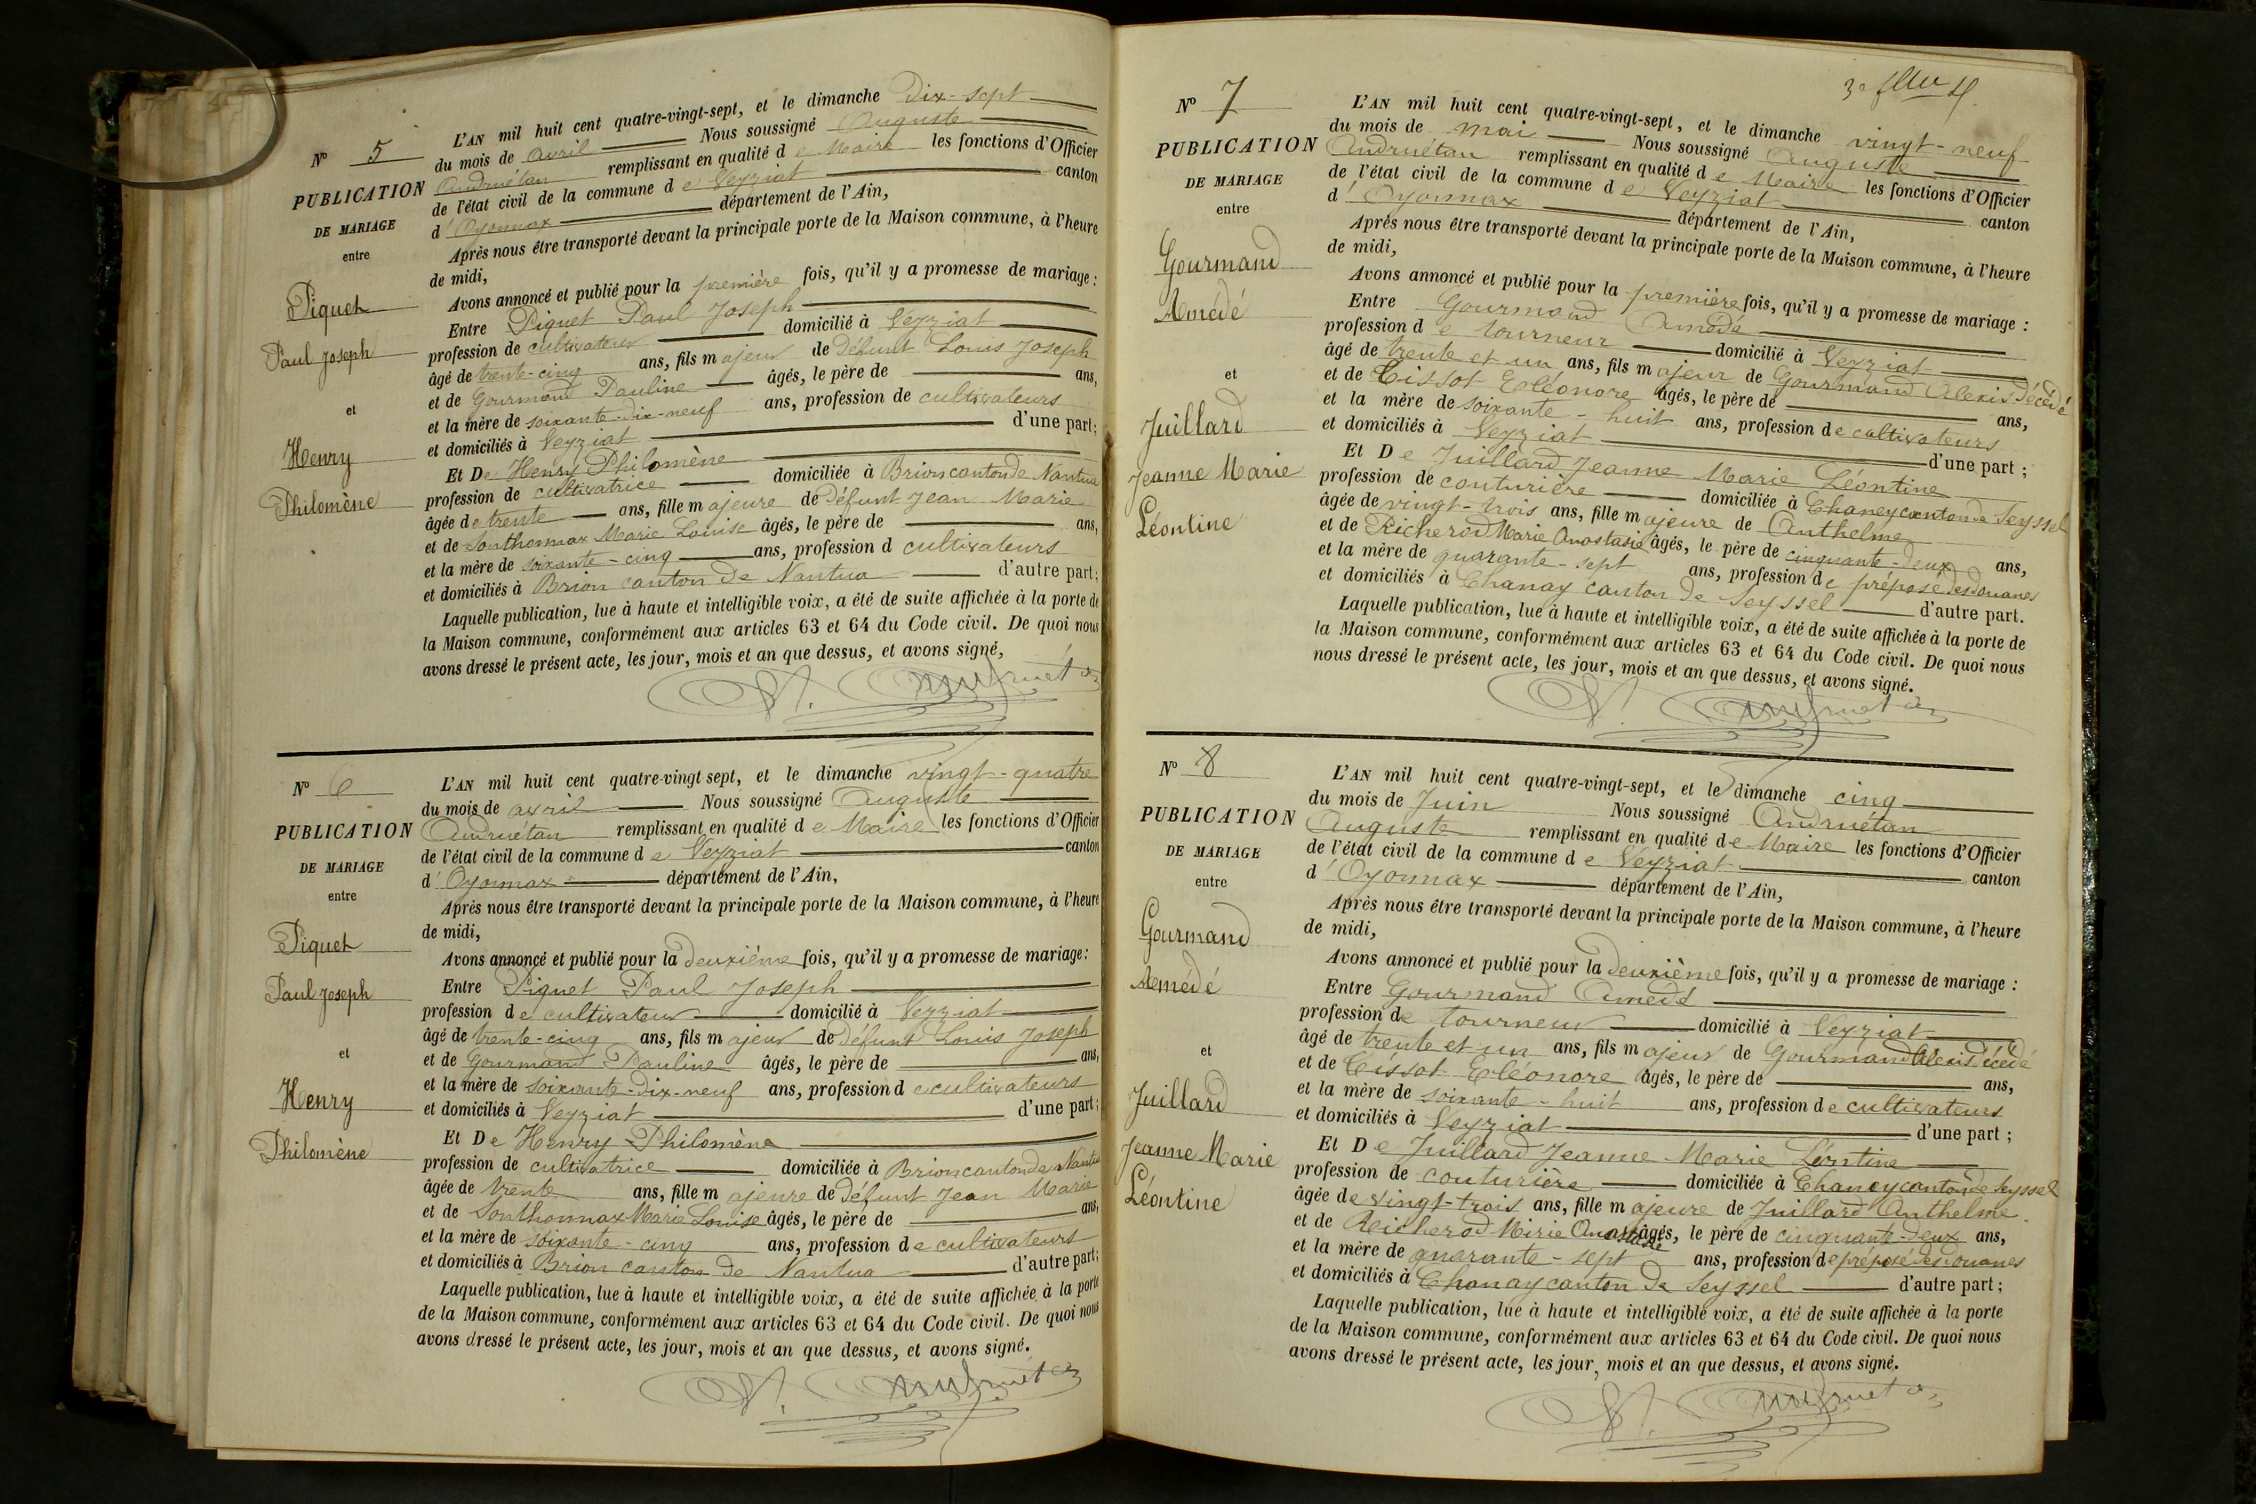 N° 5
PUBLICATION
DE MARIAGE
entre
Piquet
Paul Joseph
et
Henry
Philomène
L'AN mil huit cent quatre-vingt-sept, et le dimanche dix-sept
du mois de avril Nous soussigné Auguste
Andruétan remplissant en qualité de Maire les fonctions d'Officier
de l'état civil de la commune de Veyziat canton
d'Oyonnax département de l'Ain,
Après nous être transporté devant la principale porte de la Maison commune, à l'heure
de midi,
Avons annoncé et publié pour la première fois, qu'il y a promesse de mariage :
Entre Piquet Paul Joseph
profession de cultivateur domicilié à Veyziat
âgé de trente-cinq ans, fils majeur de Défunt Louis Joseph
et de Gourmand Pauline âgés, le père de ans,
et la mère de soixante-dix-neuf ans, profession de cultivateurs
et domiciliés à Veyziat d'une part;
Et De Henry Philomène
profession de cultivatrice domiciliée à Brion canton de Nantua
âgée de trente ans, fille majeure de Défunt Jean Marie
et de Sonthonnax Marie Louise âgés, le père de ans,
et la mère de soixante-cinq ans, profession d cultivateurs
et domiciliés à Brion canton de Nantua d'autre part;
Laquelle publication, lue à haute et intelligible voix, a été de suite affichée à la porte de
la Maison commune, conformément aux articles 63 et 64 du Code civil. De quoi nous
avons dressé le présent acte, les jour, mois et an que dessus, et avons signé,
A. Andruétan
N° 6
PUBLICATION
DE MARIAGE
entre
Piquet
Paul Joseph
et
Henry
Philomène
L'AN mil huit cent quatre-vingt sept, et le dimanche vingt-quatre
du mois de avril Nous soussigné Auguste
Andruétan remplissant en qualité de Maire les fonctions d'Officier
de l'état civil de la commune de Veyziat canton
d'Oyonnax département de l'Ain,
Après nous être transporté devant la principale porte de la Maison commune, à l'heure
de midi,
Avons annoncé et publié pour la deuxième fois, qu'il y a promesse de mariage:
Entre Piquet Paul Joseph
profession de cultivateur domicilié à Veyziat
âgé de trente-cinq ans, fils majeur de Défunt Louis Joseph
et de Gourmand Pauline âgés, le père de ans,
et la mère de soixante-dix-neuf ans, profession de cultivateurs
et domiciliés à Veyziat d'une part;
Et De Henry Philomène
profession de cultivatrice domiciliée à Brion canton de Nantua
âgée de trente ans, fille majeure de Défunt Jean Marie
et de Sonthonnax Marie Louise âgés, le père de ans,
et la mère de soixante-cinq ans, profession de cultivateurs
et domiciliés à Brion canton de Nantua d'autre part;
Laquelle publication, lue à haute et intelligible voix, a été de suite affichée à la porte
de la Maison commune, conformément aux articles 63 et 64 du Code civil. De quoi nous
avons dressé le présent acte, les jour, mois et an que dessus, et avons signé.
A. Andruétan
N° 7
PUBLICATION
DE MARIAGE
entre
Gourmand
Amédé
et
Juillard
Jeanne Marie
Léontine
L'AN mil huit cent quatre-vingt-sept, et le dimanche vingt-neuf
du mois de mai Nous soussigné Auguste
Andruétan remplissant en qualité de Maire les fonctions d'Officier
de l'état civil de la commune de Veyziat canton
d'Oyonnax département de l'Ain,
Après nous être transporté devant la principale porte de la Maison commune, à l'heure
de midi,
Avons annoncé et publié pour la première fois, qu'il y a promesse de mariage :
Entre Gourmand Amédé
profession de tourneur domicilié à Veyziat
âgé de trente et un ans, fils majeur de Gourmand Alexis Décédé
et de Tissot Eléonore âgés, le père de ans,
et la mère de soixante-huit ans, profession de cultivateurs
et domiciliés à Veyziat d'une part ;
Et De Juillard Jeanne Marie Léontine
profession de couturière domiciliée à Chaney canton de Seyssel
âgée de vingt-trois ans, fille majeure de Anthelme
et de Richerod Marie Anastasie âgés, le père de cinquante-deux ans,
et la mère de quarante-sept ans, profession de préposé des Douanes
et domiciliés à Chanay canton de Seyssel d'autre part.
Laquelle publication, lue à haute et intelligible voix, a été de suite affichée à la porte de
la Maison commune, conformément aux articles 63 et 64 du Code civil. De quoi nous
nous dressé le présent acte, les jour, mois et an que dessus, et avons signé.
A. Andruétan
N° 8
PUBLICATION
DE MARIAGE
entre
Gourmand
Amédé
et
Juillard
Jeanne Marie
Léontine
L'AN mil huit cent quatre-vingt-sept, et le dimanche cinq
du mois de Juin Nous soussigné Andruétan
Auguste remplissant en qualité de Maire les fonctions d'Officier
de l'état civil de la commune de Veyziat canton
d'Oyonnax département de l'Ain,
Après nous être transporté devant la principale porte de la Maison commune, à l'heure
de midi,
Avons annoncé et publié pour la deuxième fois, qu'il y a promesse de mariage :
Entre Gourmand Amédé
profession de tourneur domicilié à Veyziat
âgé de trente et un ans, fils majeur de Gourmand Alexis Décédé
et de Tissot Eléonore âgés, le père de ans,
et la mère de soixante-huit ans, profession de cultivateurs
et domiciliés à Veyziat d'une part ;
Et De Juillard Jeanne Marie Léontine
profession de couturière domiciliée à Chaney canton de Seyssel
âgée de vingt-trois ans, fille majeure de Juillard Anthelme
et de Reicherod Mirie Anastasie âgés, le père de cinquante-deux ans,
et la mère de quarante-sept ans, profession de préposé des Douanes
et domiciliés à Chanay canton de Seyssel d'autre part ;
Laquelle publication, lue à haute et intelligible voix, a été de suite affichée à la porte
de la Maison commune, conformément aux articles 63 et 64 du Code civil. De quoi nous
avons dressé le présent acte, les jour, mois et an que dessus, et avons signé.
A. Andruétan